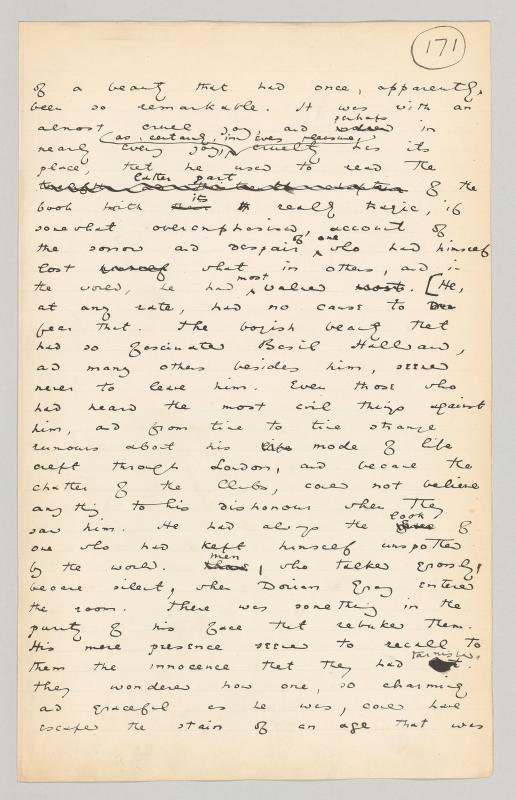 171
of a beauty that had once, apparently,
been so remarkable. It was with an
almost cruel joy, and perhaps in
nearly every joy, as certainly in every pleasure, cruelty has its
place, that he used to read the
latter part of the
book with its really tragic, if
somewhat overemphasised, account of
the sorrow and despair of one who had himself
lost what in others, and in
the world, he had most valued. [He,
at any rate, had no cause to
fear that. The boyish beauty that
had so fascinated Basil Hallward,
and many others besides him, seemed
never to leave him. Even those who
had heard the most evil things against
him, and from time to time strange
rumours about his mode of life
crept through London, and became the
chatter of the Clubs, could not believe
anything to his dishonour when they
saw him. He had always the look of
one who had kept himself unspotted
by the world. men, who talked grossly,
became silent, when Dorian Gray entered
the room. There was something in the
purity of his face that rebuked them.
His mere presence seemed to recall to
them the innocence that they had tarnished.
They wondered how one, so charming
and graceful as he was, could have
escaped the stain of an age that was